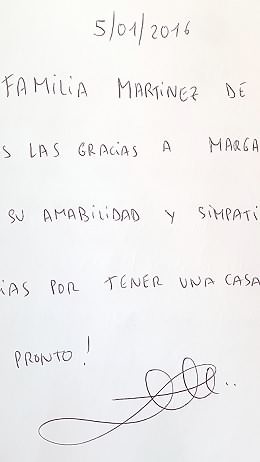 5/01/2016
FAMILIA MARTINEZ DE
S LAS GRACIAS A MARGA
SU AMABILIDAD Y SIMPATI
IAS POR TENER UNA CASA
PRONTO!